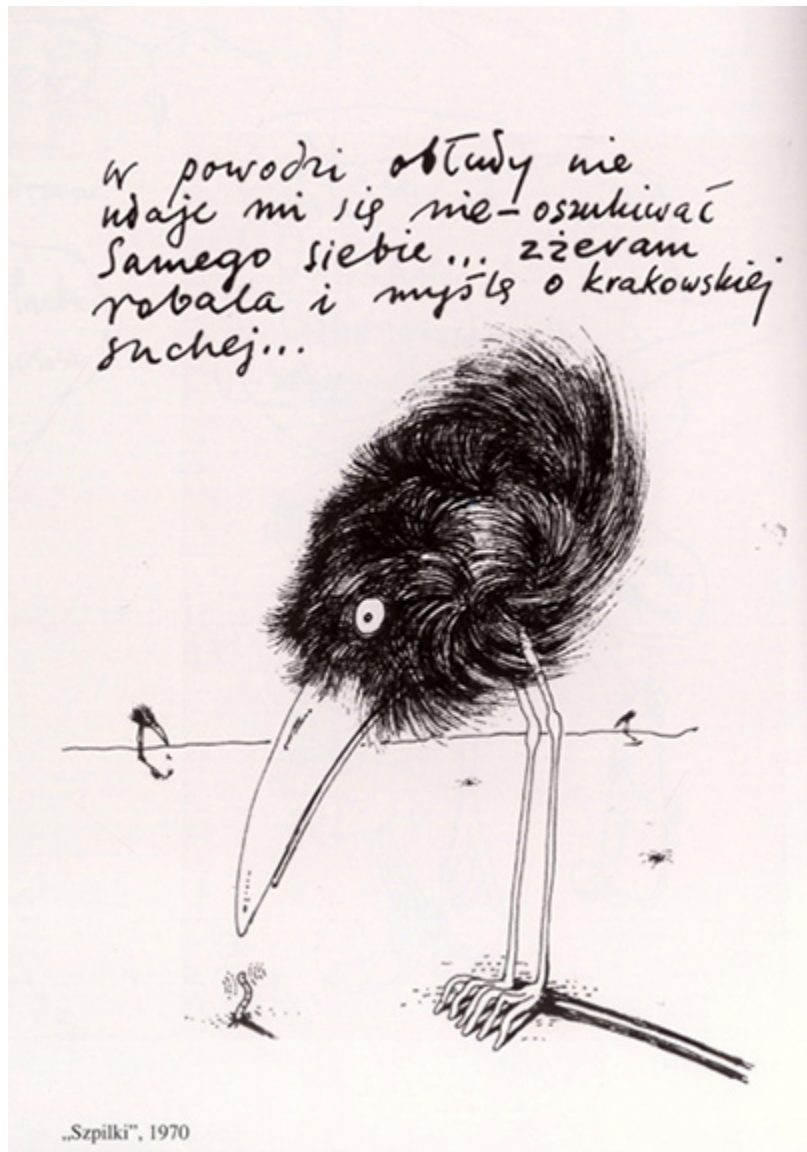 w powodzi obłudy nie
udaje mi się nie-oszukiwać
Samego siebie... zżeram
robala i myślę o krakowskiej
suchej...
„Szpilki”, 1970